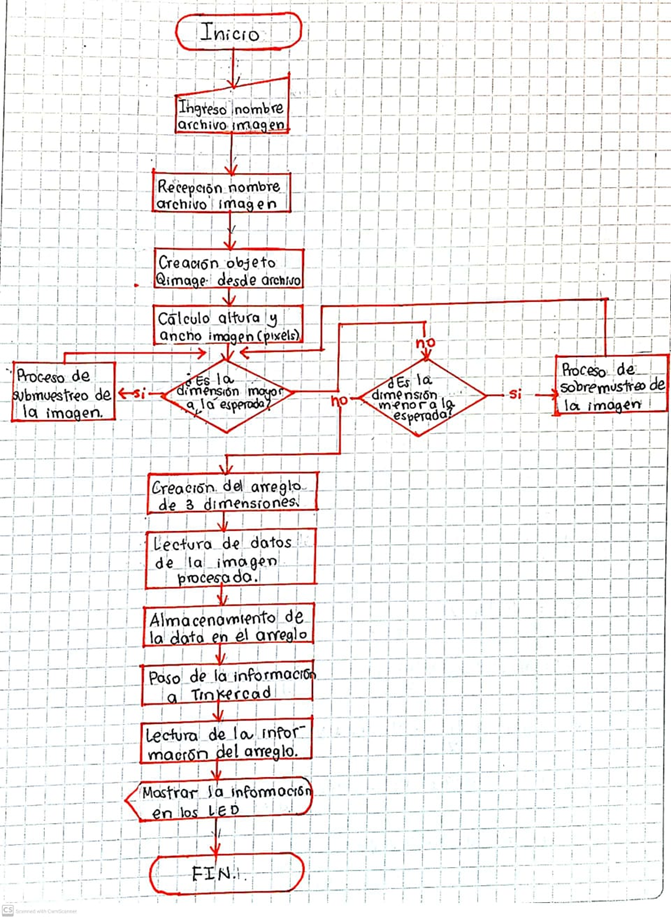 Inicio
Ingreso nombre
archivo imagen
Recepción nombre
archivo imagen
Creación objeto
Qimage desde archivo
Cálculo altura y
ancho imagen (pixels)
¿Es la
dimensión mayor
a la esperada?
si
Proceso de
submuestreo de
la imagen.
no
no
¿Es la
dimensión
menor a la
esperada?
si
Proceso de
sobremustreo de
la imagen
Creación del arreglo
de 3 dimensiones.
Lectura de datos
de la imagen
procesada.
Almacenamiento de
la data en el arreglo
Paso de la información
a Tinkercad
Lectura de la infor-
mación del arreglo.
Mostrar la información
en los LED
FIN.
CS Scanned with CamScanner